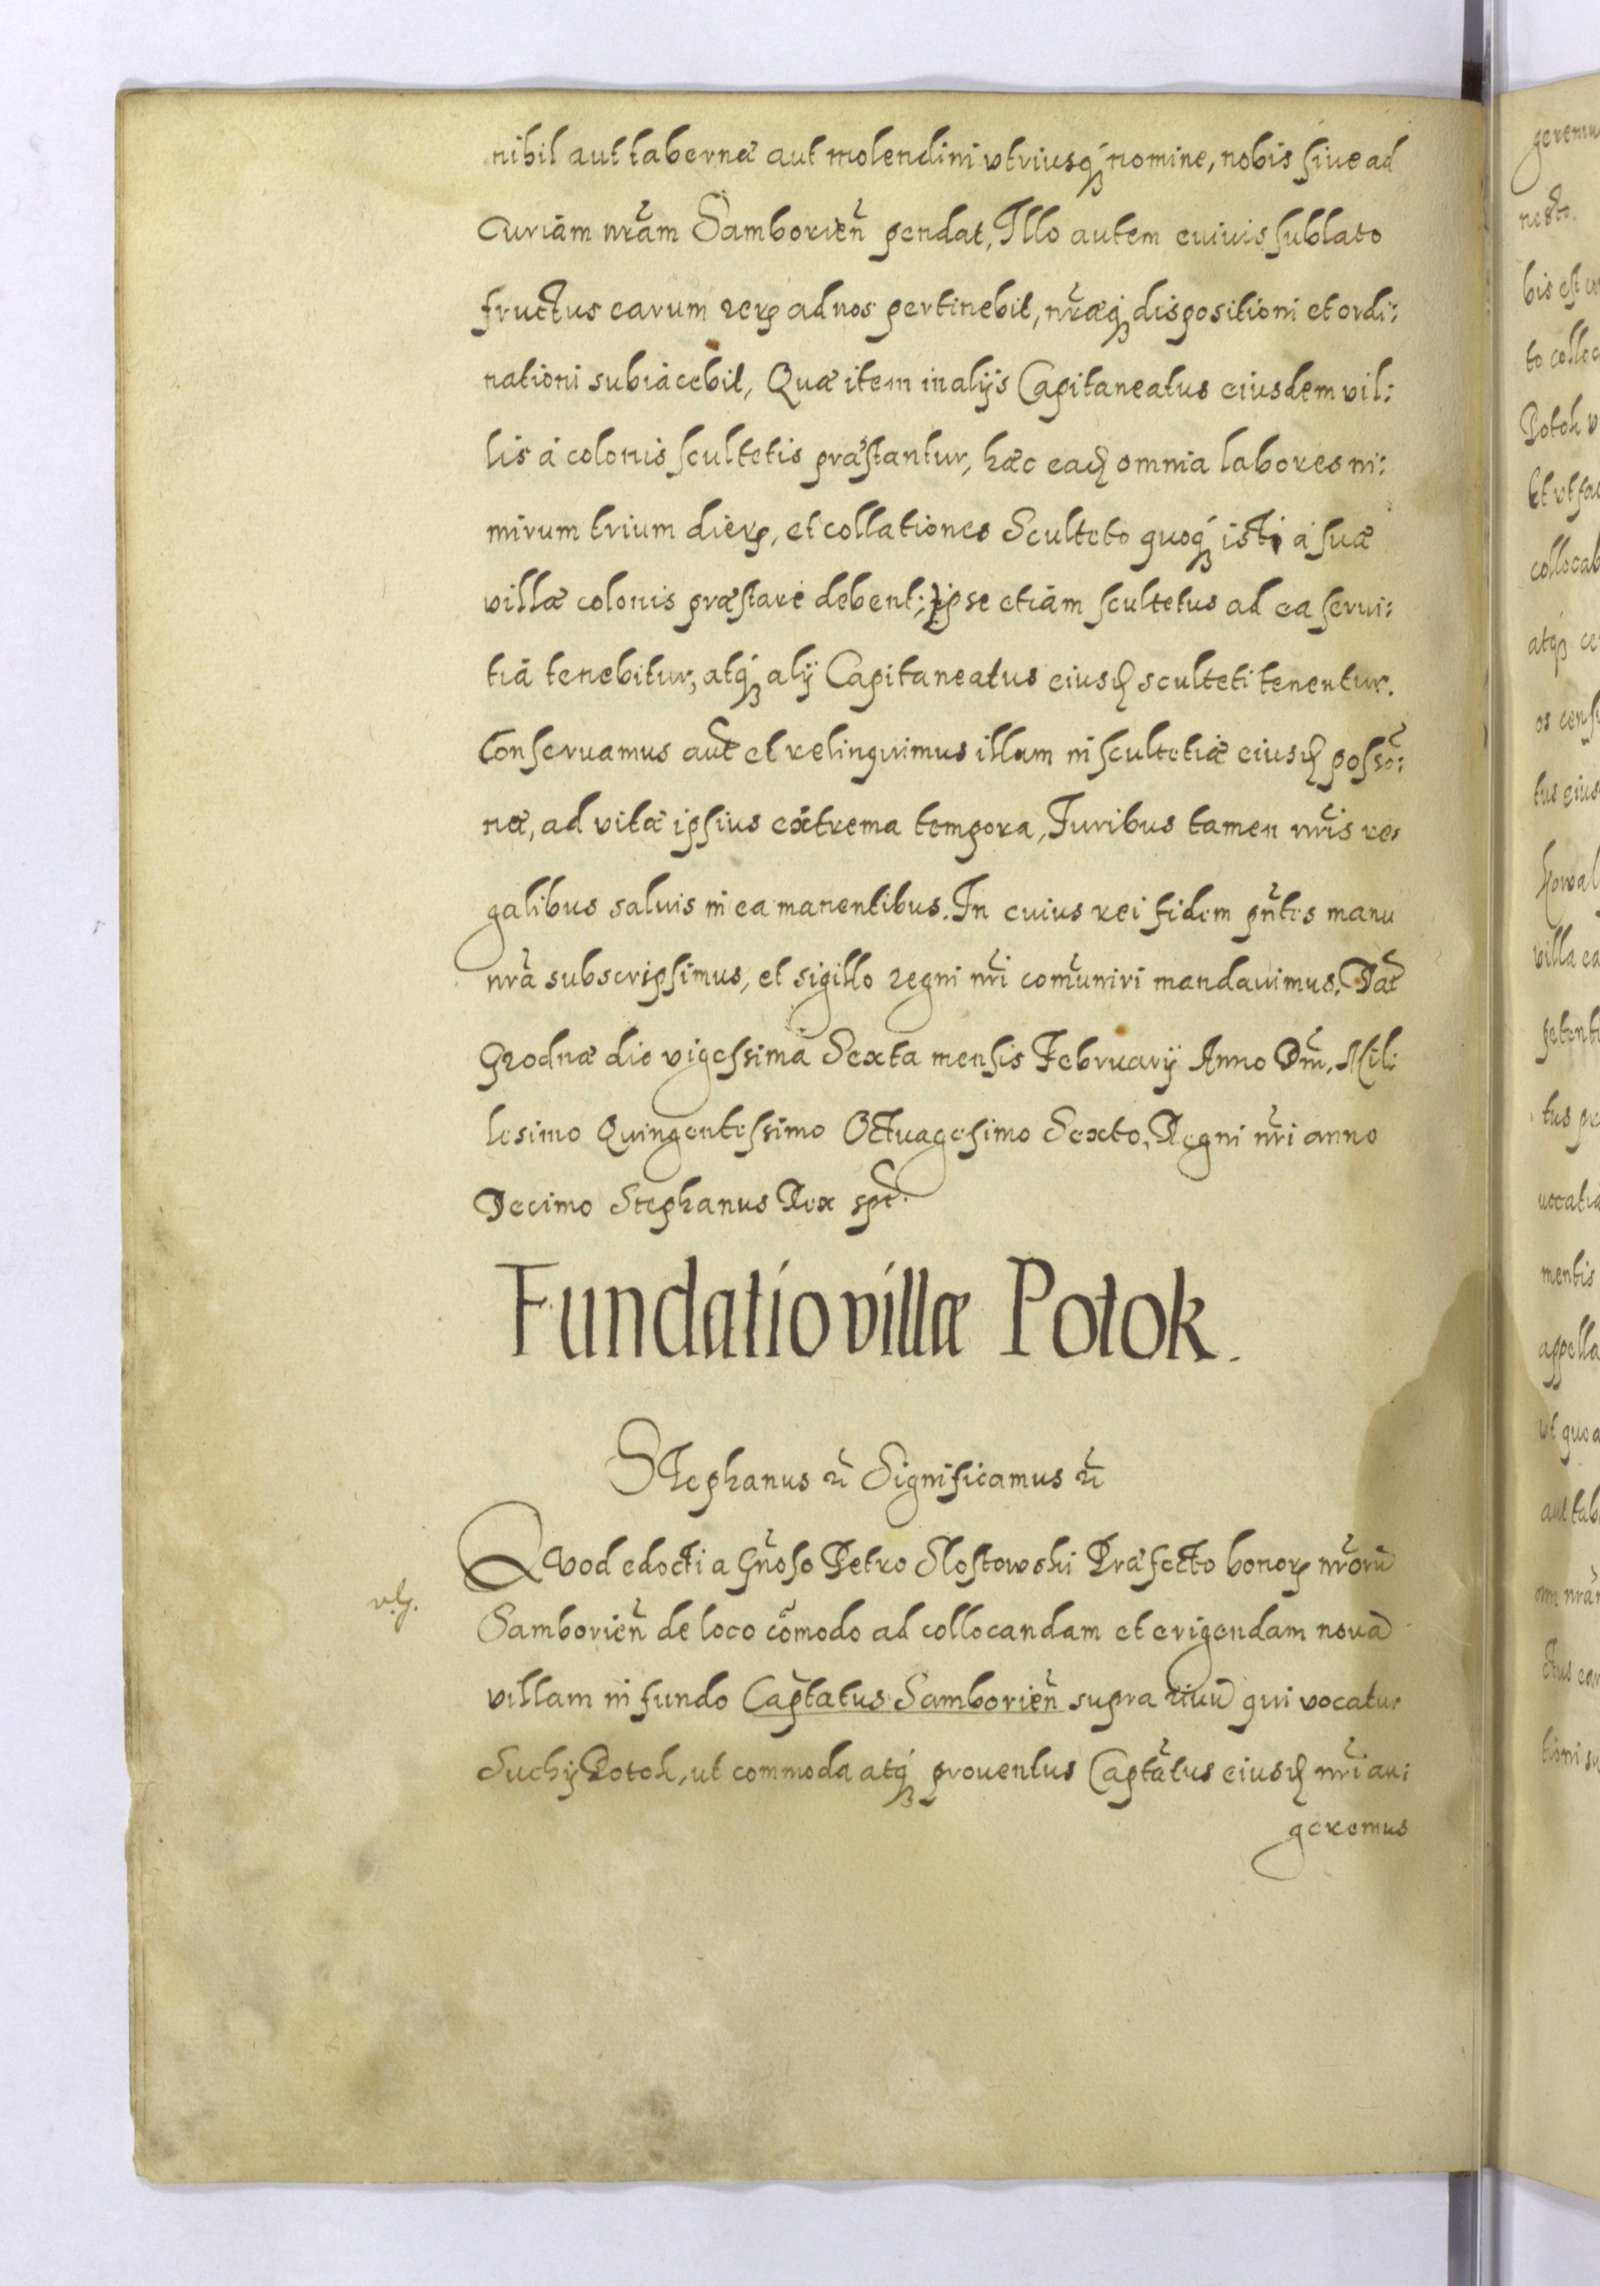 nihil aut tabernæ aut molendini vtriusq́ʒ nomine, nobis siue ad
Curiãm nr̃am Samborien̄ pendat, Illo autem euiuis sublato
fructus earum reꝝ ad nos pertinebit, nr̃æq́ʒ dispositioni et ordi:
nationi subiacebit, Quæ item in alijs Capitaneatus eiusdem vil:
lis á colonis scultetis præstantur, hæc eadꝫ omnia labores ni:
mirum trium dieꝝ, et collationes Sculteto quoq́ʒ isti á suæ
villæ colonis præstare debent; Ipse etiãm scultetus ad ea serui:
tiã tenebitur, atq́ʒ alij Capitaneatus eiusdꝫ sculteti tenentur.
Conseruamus aut̃ et relinquimus illum in scultetiæ eiusdꝫ possõ:
næ, ad vitæ ipsius extrema tempora, Iuribus tamen nr̃is re:
galibus saluis in ea manentibus. In cuius rei fidem pn̄tes manu
nr̃a subscripsimus, et sigillo regni nr̃i com̃uniri mandauimus. Dat̃
Grodnæ die vigessima Sexta mensis February Anno Dn̄i. Mil:
lesimo Quingentessimo Octuagesimo Sexto, Regni nr̃i anno
Decimo Stephanus Rex spt̃.
Fundatio villæ Potok.
Stephanus r̃t Significamus r̃t
Quod edocti a Gn̄oso Petro Slostowski Præfecto bonoꝝ nr̃orũ
v. g.
Samborien̄ de loco cõmodo ad collocandam et erigendam nouã
villam in fundo Cap̃tatus Samborien̄ supra riuũ qui vocatur
Suchy Potok, ut commoda atq́ʒ prouentus Capt̃atus eiusdꝫ nr̃i au:
geremus